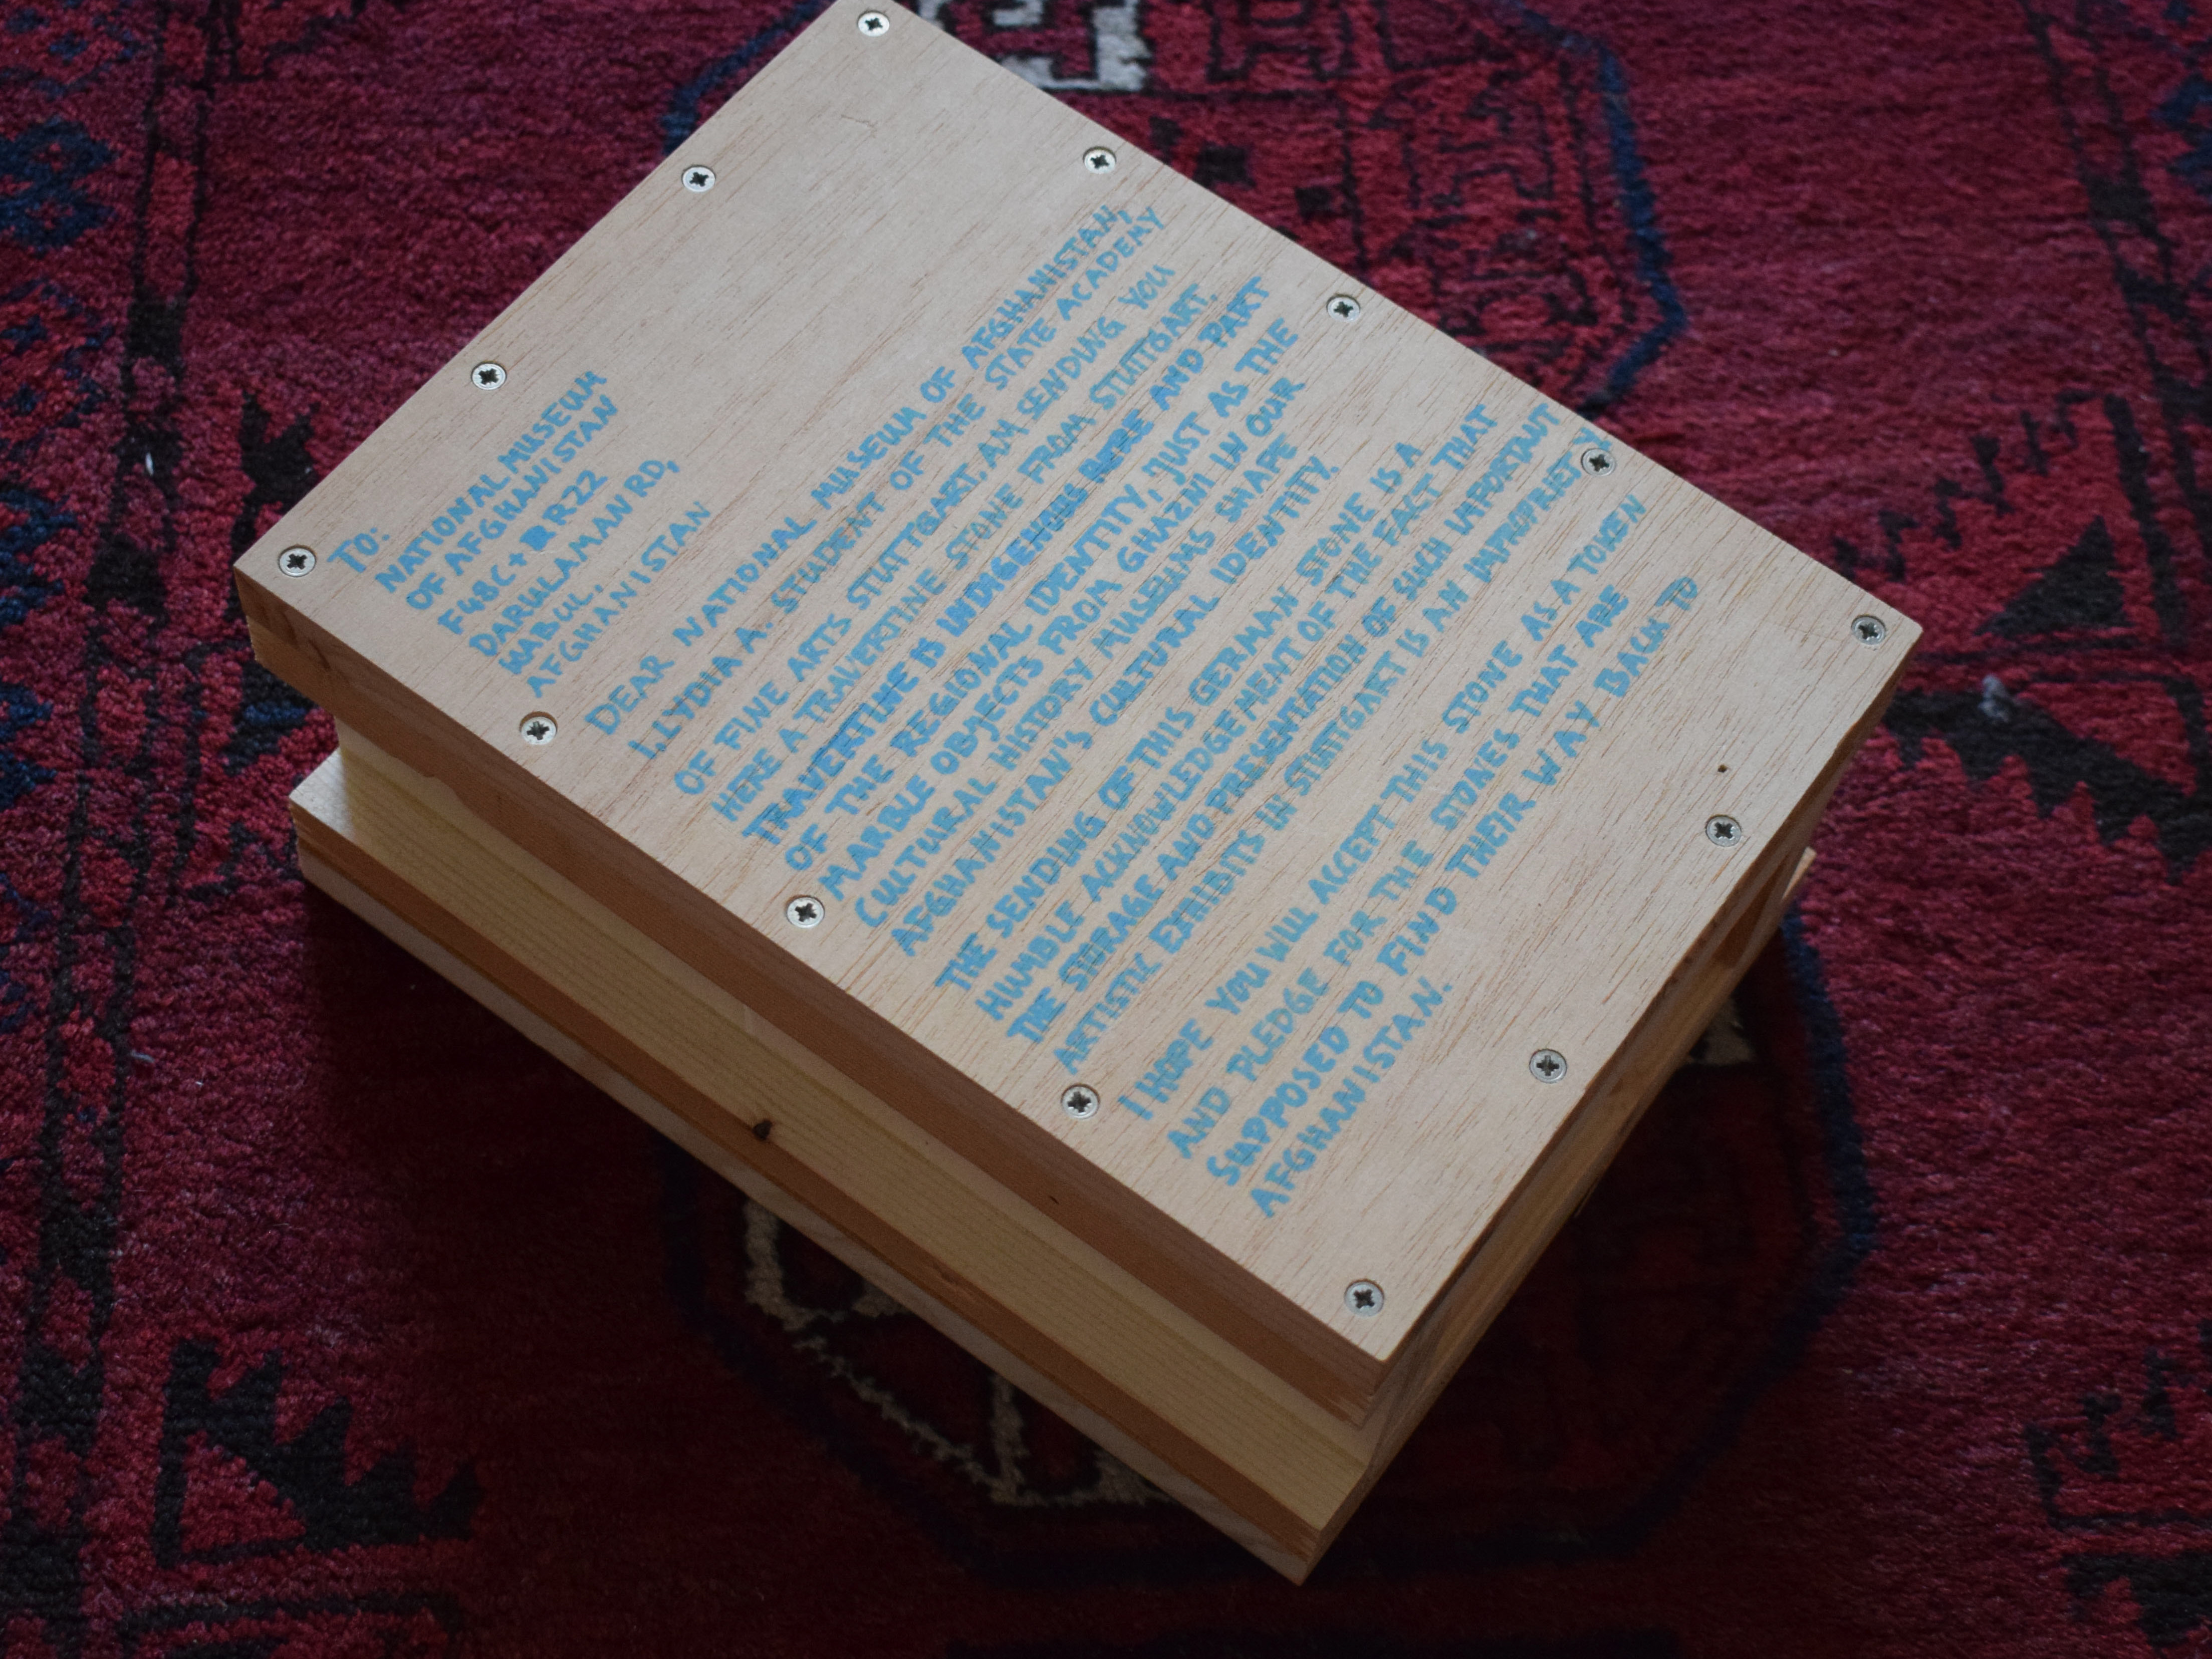 TO:
NATIONAL MUSEUM
OF AFGHANISTAN
F48C+RR22
DARULAMAN RD,
KABUL,
AFGHANISTAN
DEAR NATIONAL MUSEUM OF AFGHANISTAN,
I, LYDIA A. STUDENT OF THE STATE ACADEMY
OF FINE ARTS STUTTGART. AM SENDING YOU
HERE A TRAVERTINE STONE FROM STUTTGART.
TRAVERTINE IS INDIGENOUS HERE AND PART
OF THE REGIONAL IDENTITY, JUST AS THE
MARBLE OBJECTS FROM GHAZNI IN OUR
CULTURAL HISTORY MUSEUMS SHAPE
AFGHANISTAN'S CULTURAL IDENTITY.
THE SENDING OF THIS GERMAN STONE IS A
HUMBLE ACKNOWLEDGEMENT OF THE FACT THAT
THE STORAGE AND PRESENTATION OF SUCH IMPORTANT
ARTISTIC EXHIBITS IN STUTTGART IS AN IMPROPRIETY.
I HOPE YOU WILL ACCEPT THIS STONE AS A TOKEN
AND PLEDGE FOR THE STONES THAT ARE
SUPPOSED TO FIND THEIR WAY BACK TO
AFGHANISTAN.